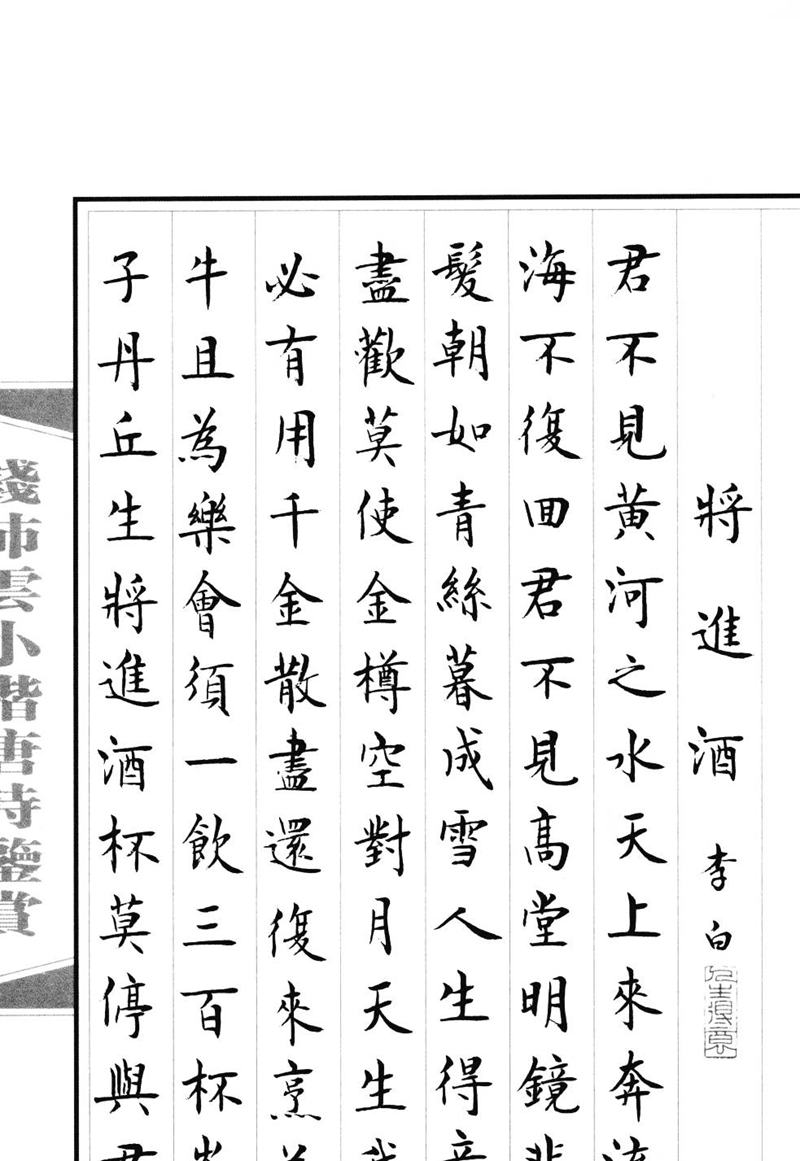 將進酒 李白
君不見黃河之水天上來奔流
海不復回君不見高堂明鏡悲
髮朝如青絲暮成雪人生得意
盡歡莫使金樽空對月天生我
必有用千金散盡還復來烹羊
牛且為樂會須一飲三百杯岑
子丹丘生將進酒杯莫停與君
錢沛雲小楷唐詩鑒賞